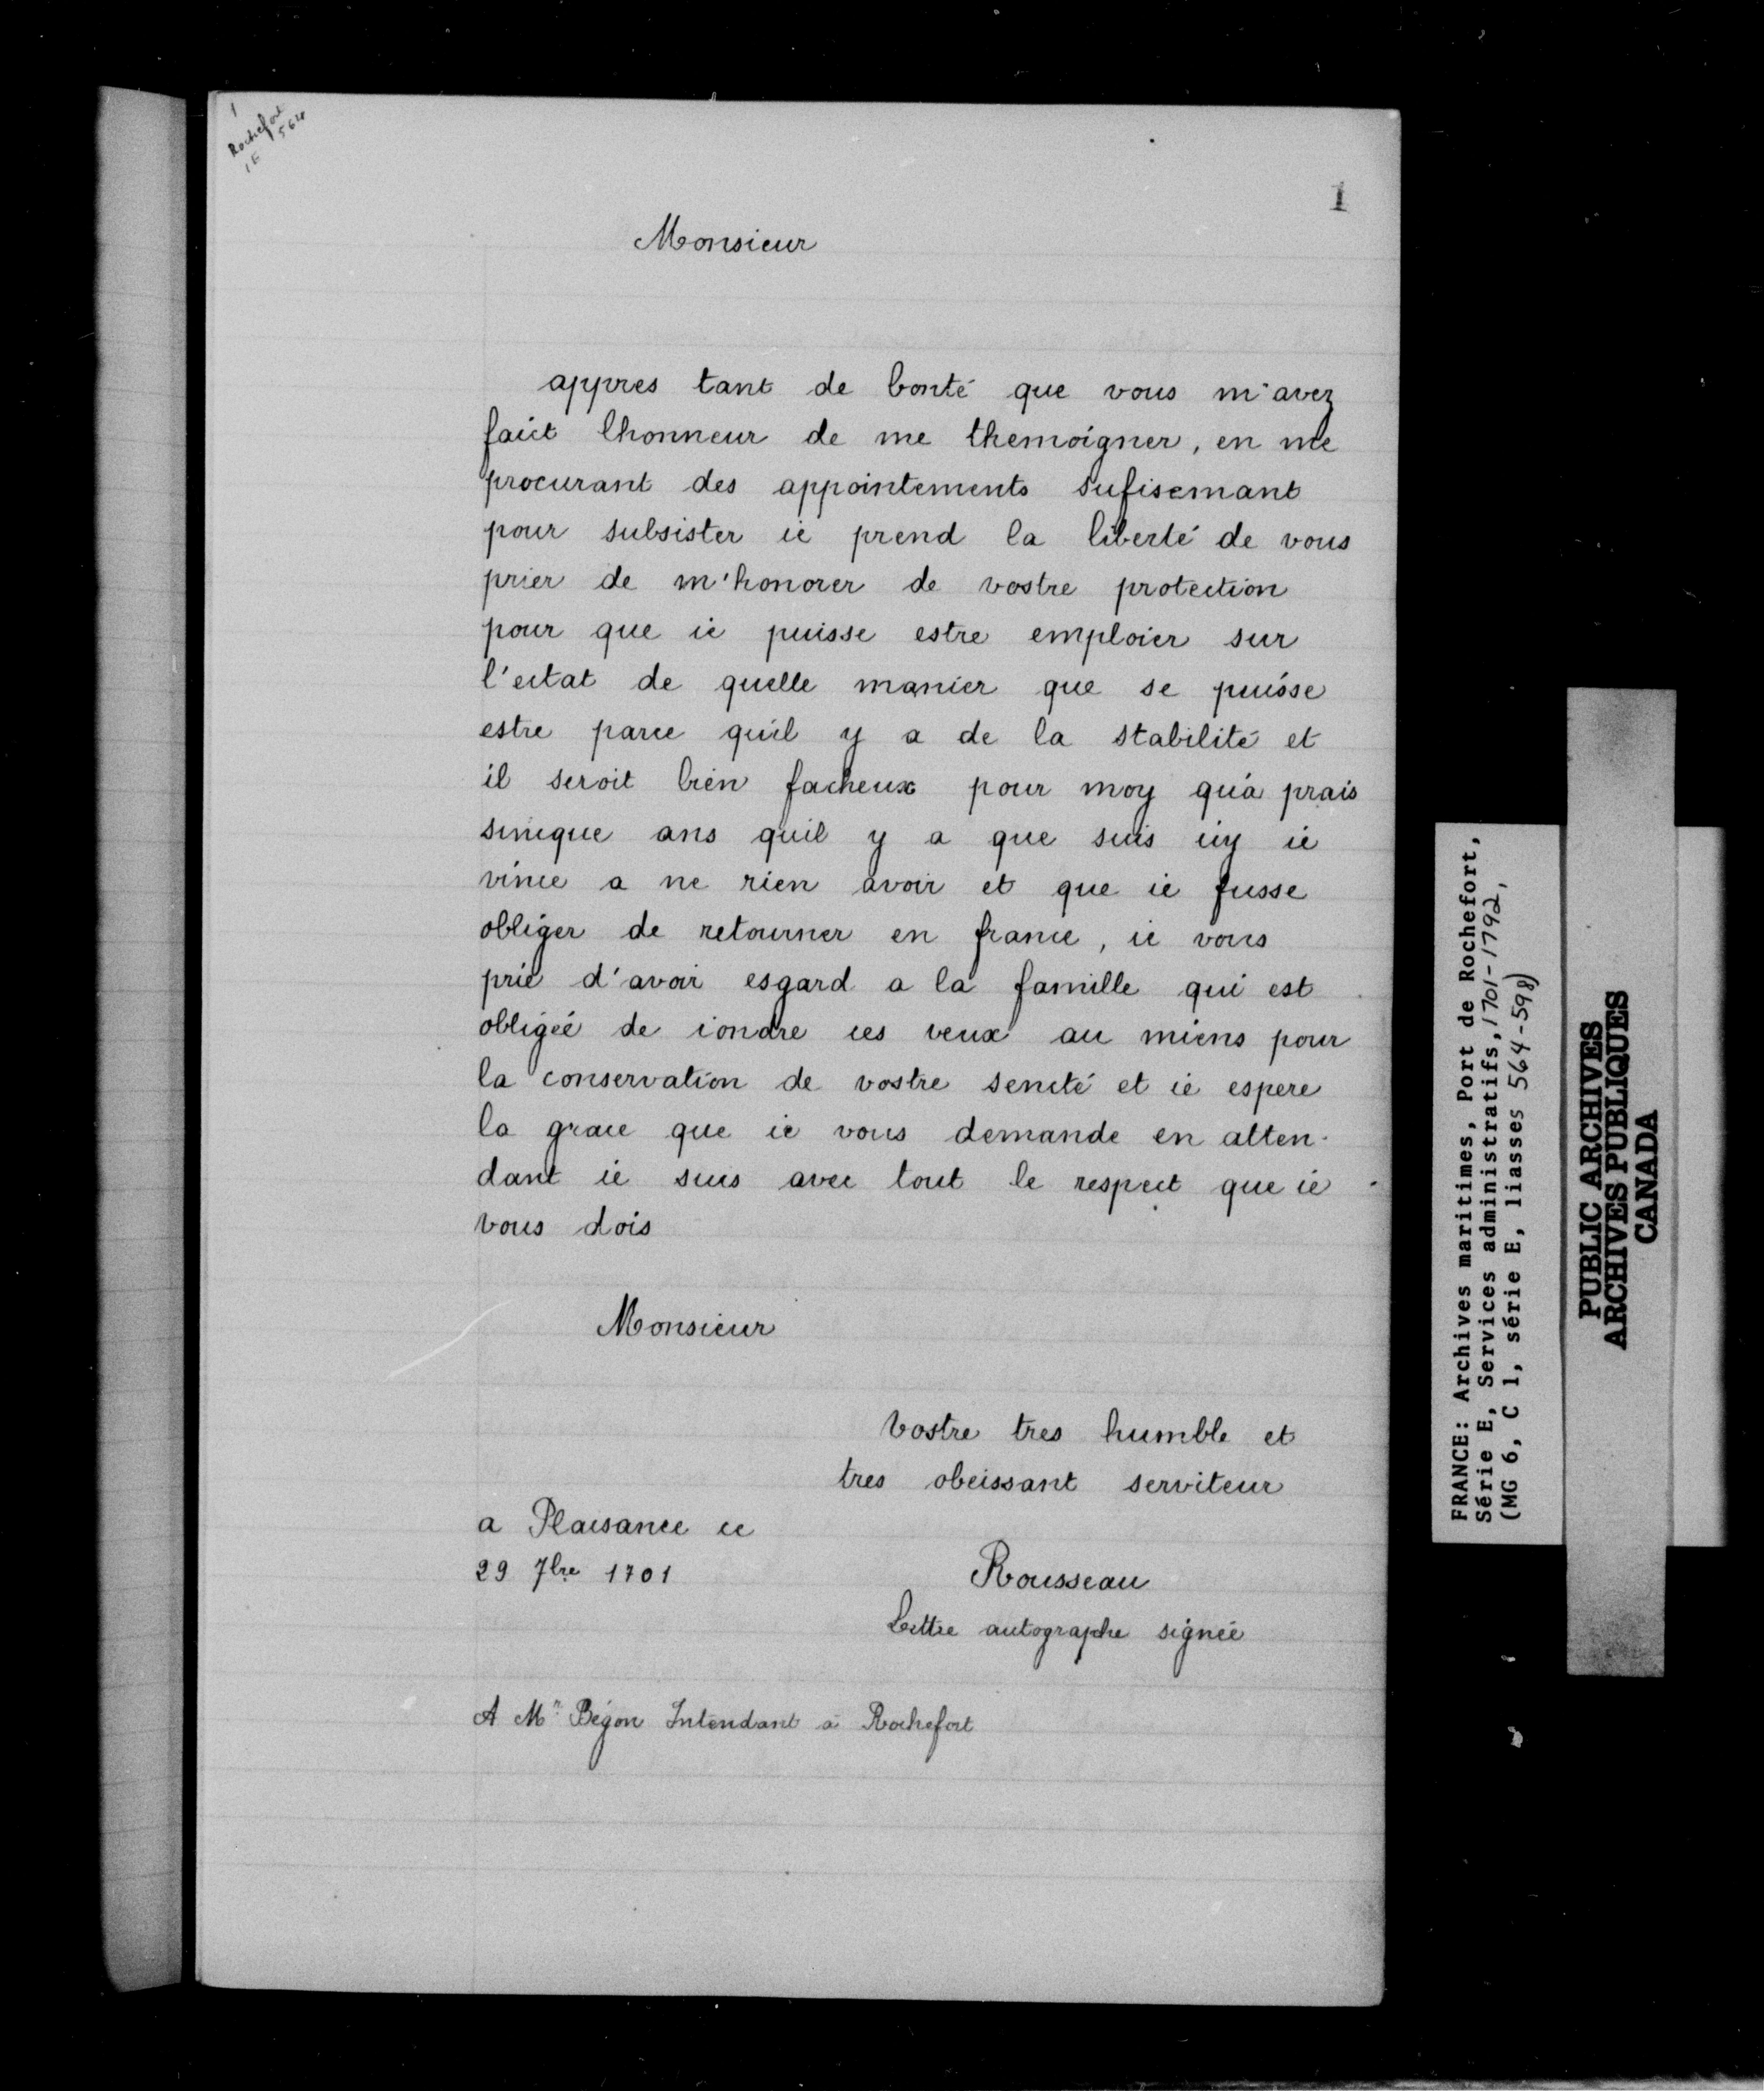 1
Rochefort
1E 564
1
Monsieur
appres tant de bonté que vous m'avez
faict lhonneur de me themoigner, en me
procurant des appointements sufisemant
pour subsister ie prend la liberté de vous
prier de m'honorer de vostre protection
pour que ie puisse estre emploier sur
l'estat de quelle manier que se puisse
estre parce quil y a de la stabilité et
il seroit bien facheux pour moy qu'a prais
sincque ans quil y a que suis icy ie
vince a ne rien avoir et que ie fusse
obliger de retourner en france, ie vous
prie d'avoir esgard a la famille qui est
obligéé de iondre ces veux au miens pour
la conservation de vostre sencté et ie espere
la grace que ie vous demande en atten-
dant ie suis avec tout le respect que ie
vous dois
Monsieur
Vostre tres humble et
tres obeissant serviteur
a Plaisance ce
29 7bre 1701
Rousseau
Lettre autographe signée
A Mr Bégon Intendant à Rochefort
FRANCE: Archives maritimes, Port de Rochefort,
Série E, Services administratifs, 1701-1792,
(MG 6, C 1, série E, liasses 564-598)
PUBLIC ARCHIVES
ARCHIVES PUBLIQUES
CANADA